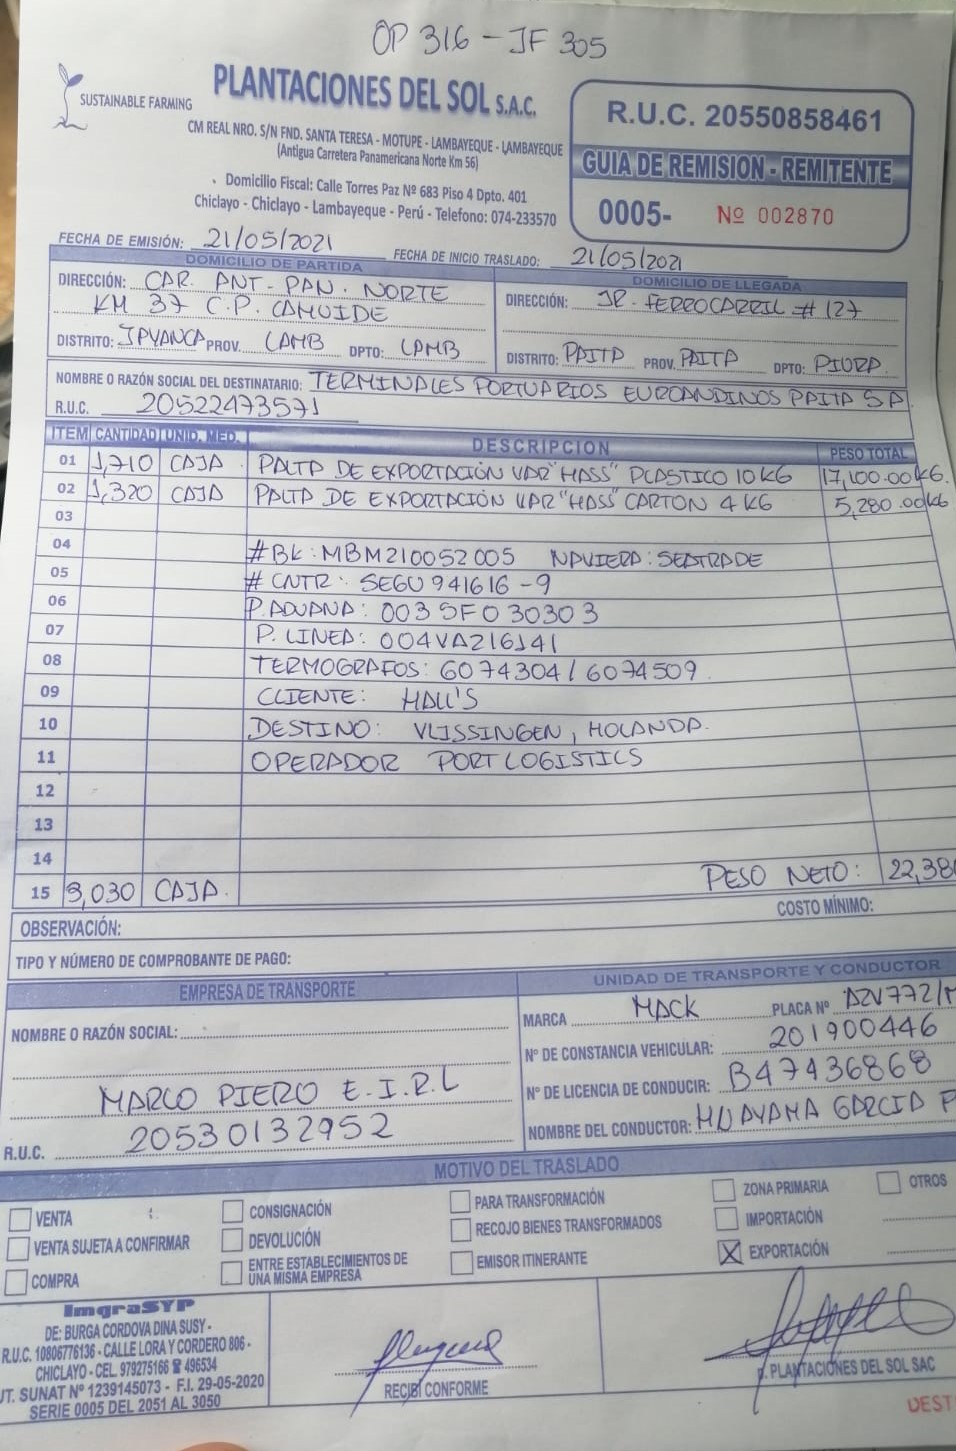 OP 316 - JF 305
SUSTAINABLE FARMING
PLANTACIONES DEL SOL S.A.C.
CM REAL NRO. S/N FND. SANTA TERESA - MOTUPE - LAMBAYEQUE - LAMBAYEQUE
(Antigua Carretera Panamericana Norte Km 56)
Domicilio Fiscal: Calle Torres Paz Nº 683 Piso 4 Dpto. 401
Chiclayo - Chiclayo - Lambayeque - Perú - Telefono: 074-233570
R.U.C. 20550858461
GUIA DE REMISION - REMITENTE
0005- Nº 002870
FECHA DE EMISIÓN: 21/05/2021 FECHA DE INICIO TRASLADO: 21/05/2021
DOMICILIO DE PARTIDA
DIRECCIÓN: CAR. ANT- PAN. NORTE
KM 37 C.P. CAHUIDE
DISTRITO: JAYANCA PROV. LAMB DPTO: LAMB
DOMICILIO DE LLEGADA
DIRECCIÓN: JR. FERROCARRIL # 127
DISTRITO: PAITA PROV. PAITA DPTO: PIURA.
NOMBRE O RAZÓN SOCIAL DEL DESTINATARIO: TERMINALES PORTUARIOS EUROANDINOS PAITA SA
R.U.C. 20522473571
ITEM CANTIDAD UNID. MED. DESCRIPCION PESO TOTAL
01 1,710 CAJA PALTA DE EXPORTACIÓN VAR "HASS" PLASTICO 10KG 17,100.00KG.
02 1,320 CAJA PALTA DE EXPORTACIÓN VAR "HASS" CARTON 4 KG 5,280.00KG
03
04 #BK: MBM210052005 NAVIERA: SEATRADE
05 # CNTR: SEGU 941616-9
06 P. ADUANA: 0035F030303
07 P. LINEA: 004VA216141
08 TERMOGRAFOS: 6074304 / 6074509
09 CLIENTE: HALL'S
10 DESTINO: VLISSINGEN, HOLANDA.
11 OPERADOR PORT LOGISTICS
12
13
14
15 3,030 CAJA. PESO NETO: 22,380
COSTO MÍNIMO:
OBSERVACIÓN:
TIPO Y NÚMERO DE COMPROBANTE DE PAGO:
EMPRESA DE TRANSPORTE
NOMBRE O RAZÓN SOCIAL:
MARCO PIERO E.I.R.L
R.U.C. 20530132952
UNIDAD DE TRANSPORTE Y CONDUCTOR
MARCA MACK PLACA Nº AZV772/M
Nº DE CONSTANCIA VEHICULAR: 201900446
Nº DE LICENCIA DE CONDUCIR: B47436868
NOMBRE DEL CONDUCTOR: HUAYAMA GARCIA P
MOTIVO DEL TRASLADO
VENTA
VENTA SUJETA A CONFIRMAR
COMPRA
CONSIGNACIÓN
DEVOLUCIÓN
ENTRE ESTABLECIMIENTOS DE
UNA MISMA EMPRESA
PARA TRANSFORMACIÓN
RECOJO BIENES TRANSFORMADOS
EMISOR ITINERANTE
ZONA PRIMARIA
IMPORTACIÓN
X EXPORTACIÓN
OTROS
ImgraSYP
DE: BURGA CORDOVA DINA SUSY -
R.U.C. 10806776136 - CALLE LORA Y CORDERO 806 -
CHICLAYO - CEL. 979275166 ☎ 496534
UT. SUNAT Nº 1239145073 - F.I. 29-05-2020
SERIE 0005 DEL 2051 AL 3050
RECIBÍ CONFORME
p. PLANTACIONES DEL SOL SAC
DEST